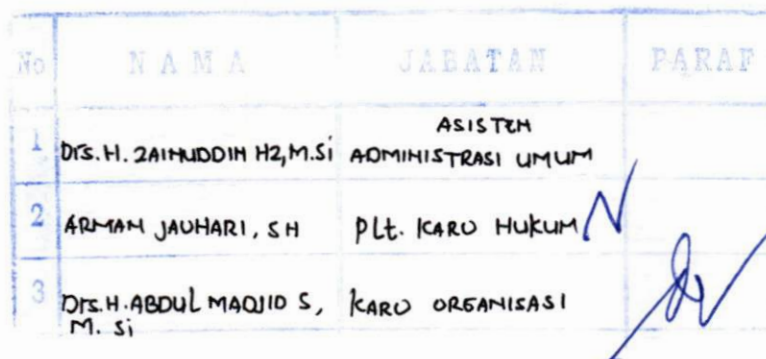 No NAMA JABATAN PARAF
1 Drs. H. ZAINUDDIN HZ, M.Si ASISTEN
ADMINISTRASI UMUM
2 ARMAN JAUHARI, SH Plt. KARO HUKUM
3 Drs. H. ABDUL MADJID S, KARO ORGANISASI
M. Si